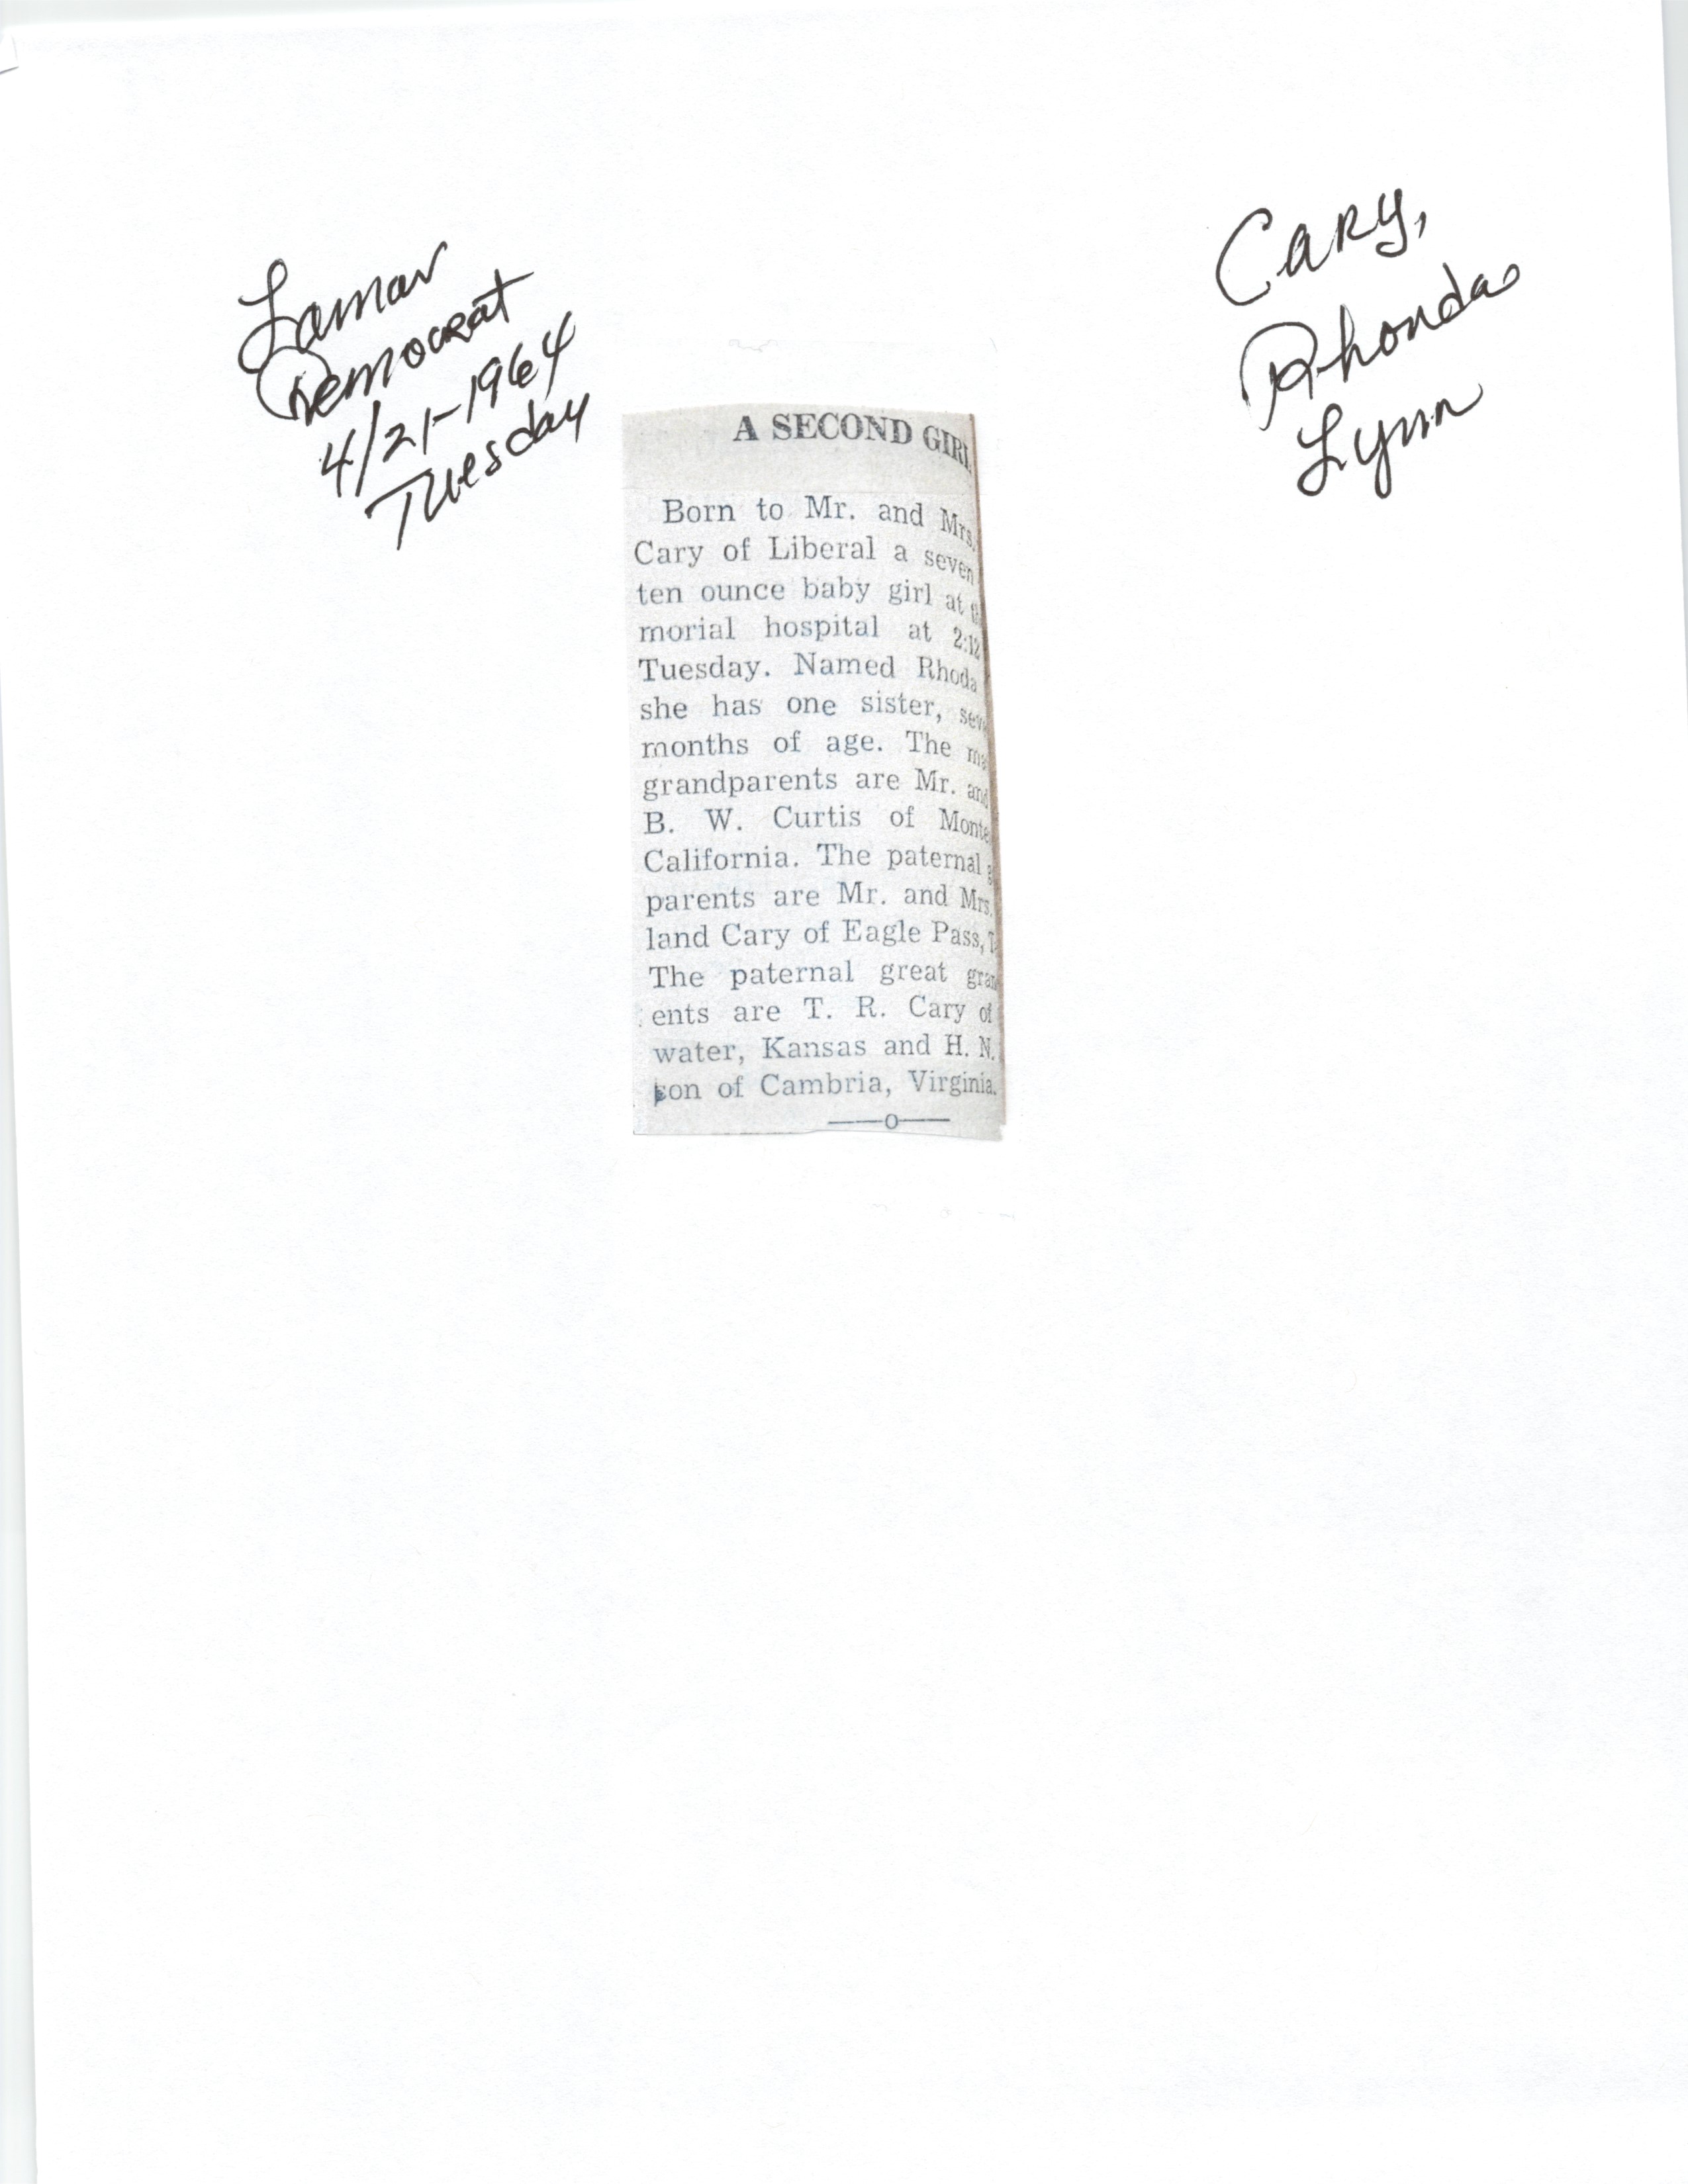 Lamar
Democrat
4/21-1964
Tuesday
Cary,
Rhonda
Lynn
A SECOND GIRL
Born to Mr. and Mrs.
Cary of Liberal a seven
ten ounce baby girl at
morial hospital at 2:12
Tuesday. Named Rhoda
she has one sister,
months of age. The
grandparents are Mr. and
B. W. Curtis of Monte
California. The paternal
parents are Mr. and Mrs.
land Cary of Eagle Pass,
The paternal great gran
ents are T. R. Cary of
water, Kansas and H. N.
son of Cambria, Virginia.